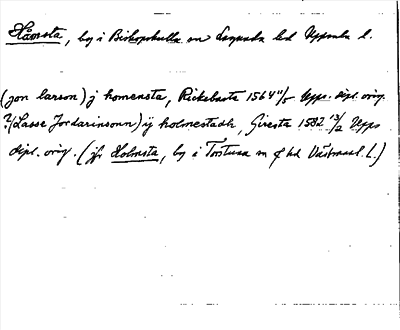 Håmsta, by i Biskopskulla sn Lagunda hd Uppsala l.
(jon larson) j homensta, Rickebasta 1564 11/5 Upps. dipl. orig.
?/(Lasse Jordarinsonn) ij holmestadh, Giresta 1582 13/2 Upps
dipl. orig. (jfr Holmsta, by i Tortuna sn hd Västmanl. l.)